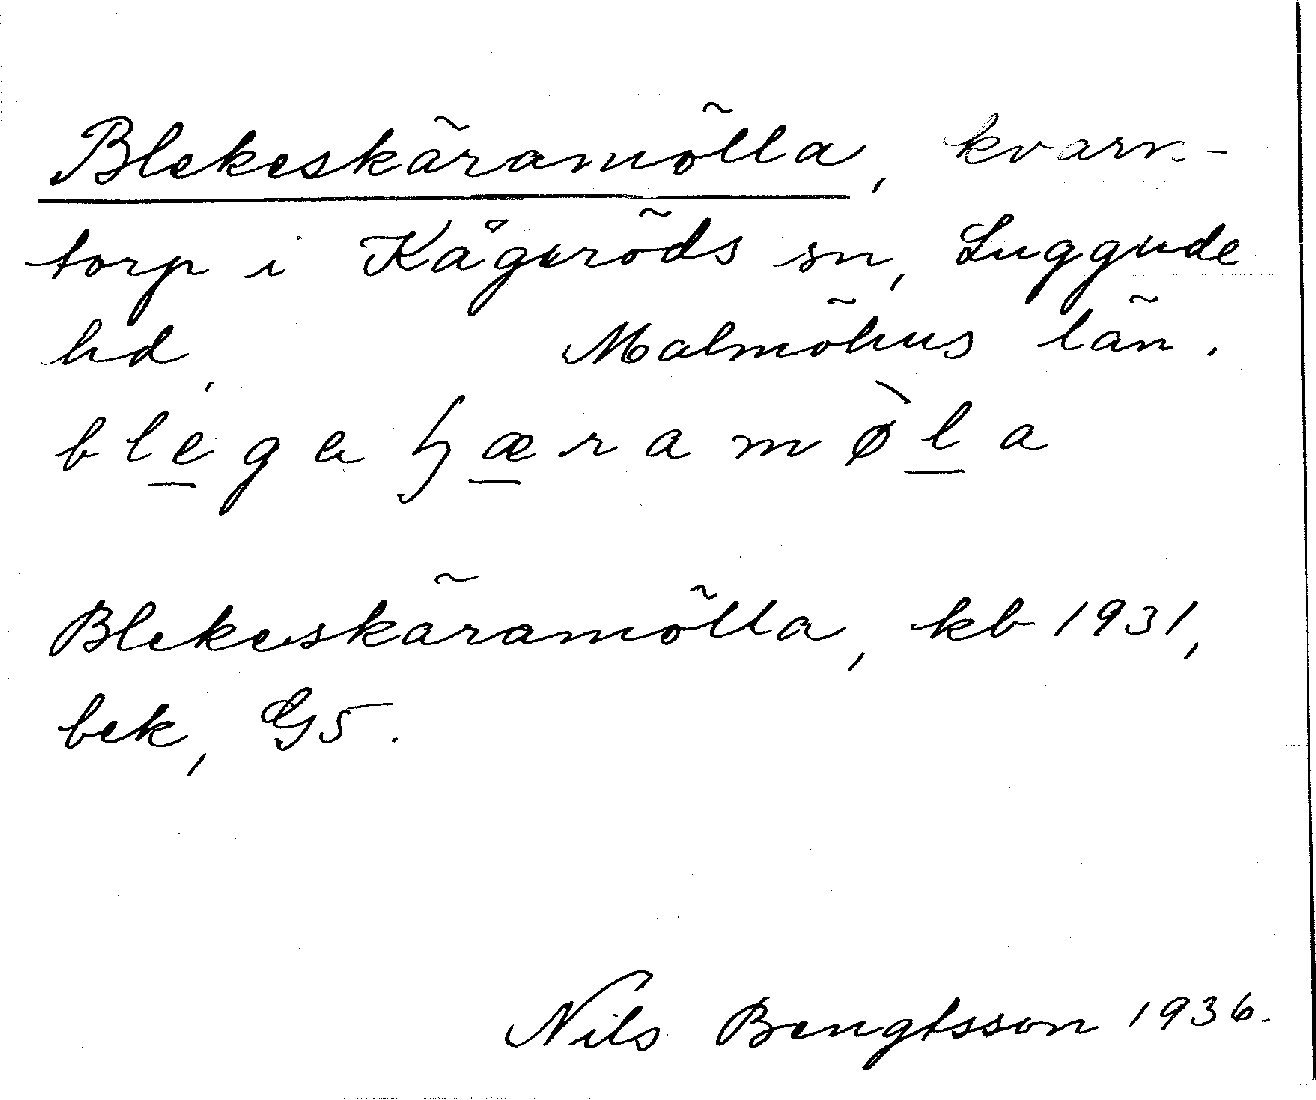 Blekeskäramölla, kvarn-
torp i Kågeröds sn, Luggude
hd, Malmöhus län.
blegaɧæramø̀la
Blekeskäramölla, kb 1931,
bek, G5.
Nils Bengtsson 1936.